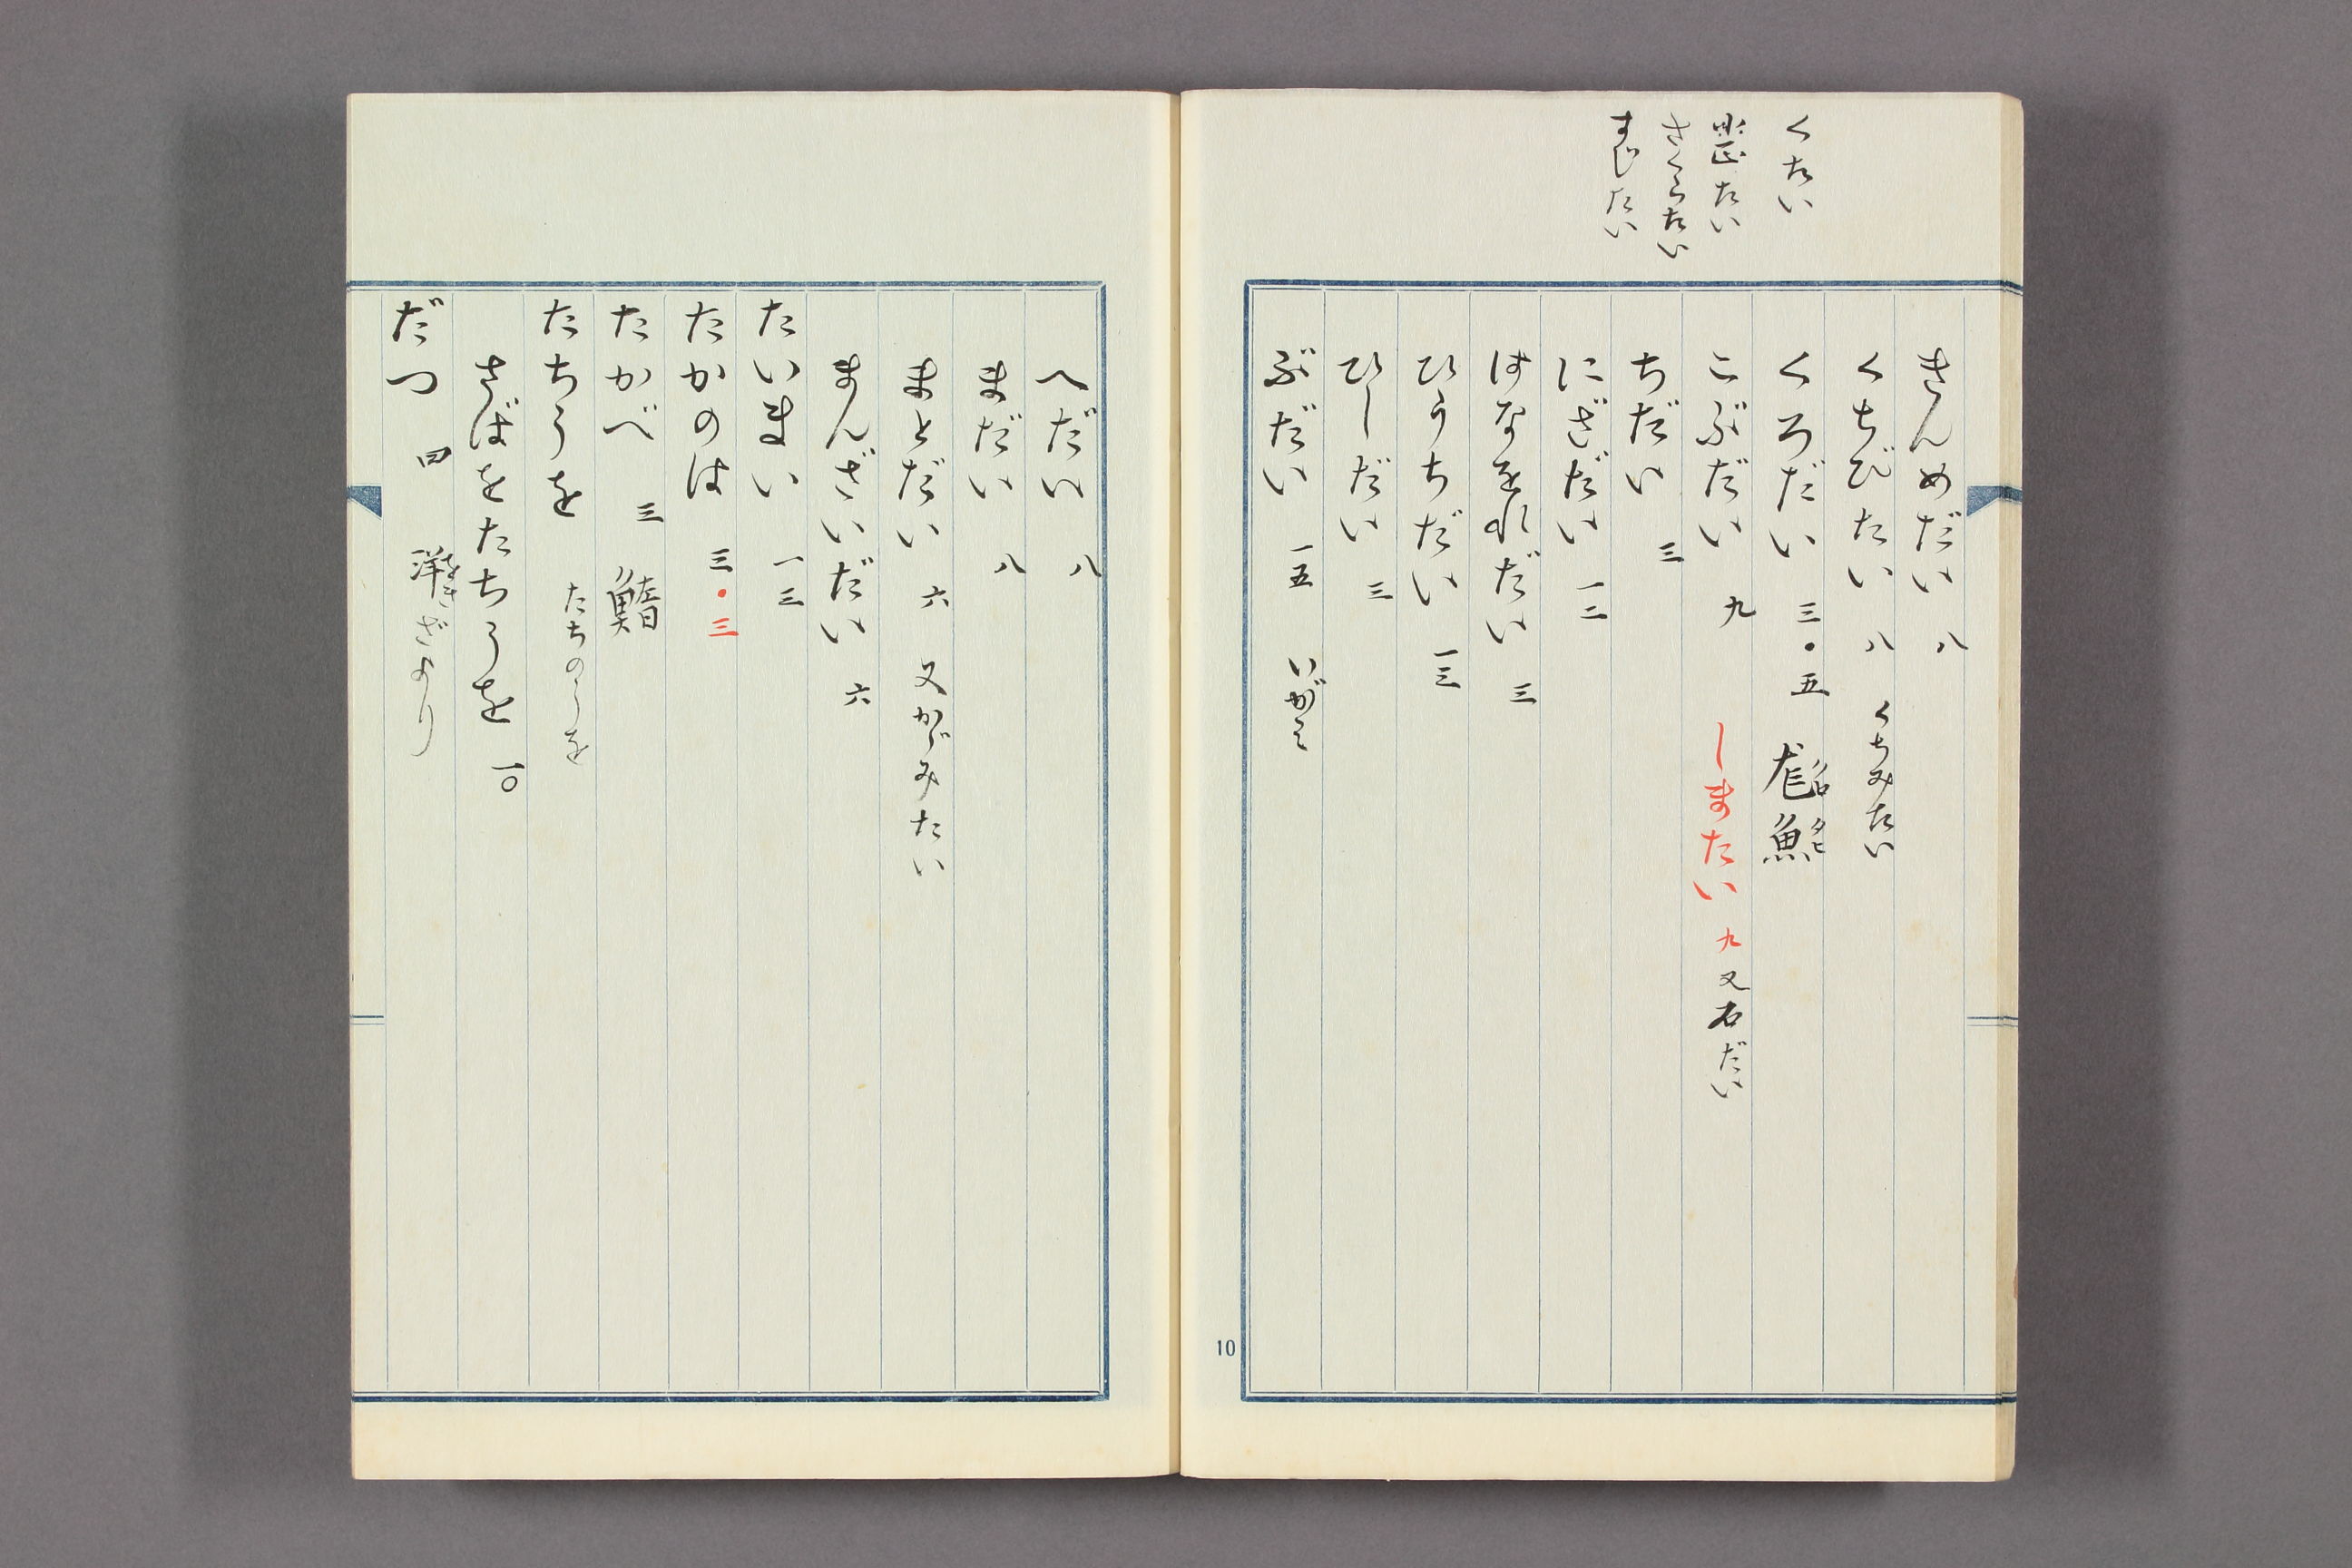 くたい
たい
さくらたい
すじたい
きんめだい 八
くちびたい 八 くちみたい
くろだい 三・五
こぶだい 九 しまたい 九 又右だい
ちだい 三
にざだい 一二
はなをれだい 三
ひうちだい 一三
ひしだい 三
ぶだい 一五 いがみ
10
へだい 八
まだい 八
まとだい 六 又かゞみたい
まんざいだい 六
たいまい 一三
たかのは 三・三
たかべ 三 鰖
たちうを たちのうを
さばをたちうを 一〇
だつ 四 洋ざより